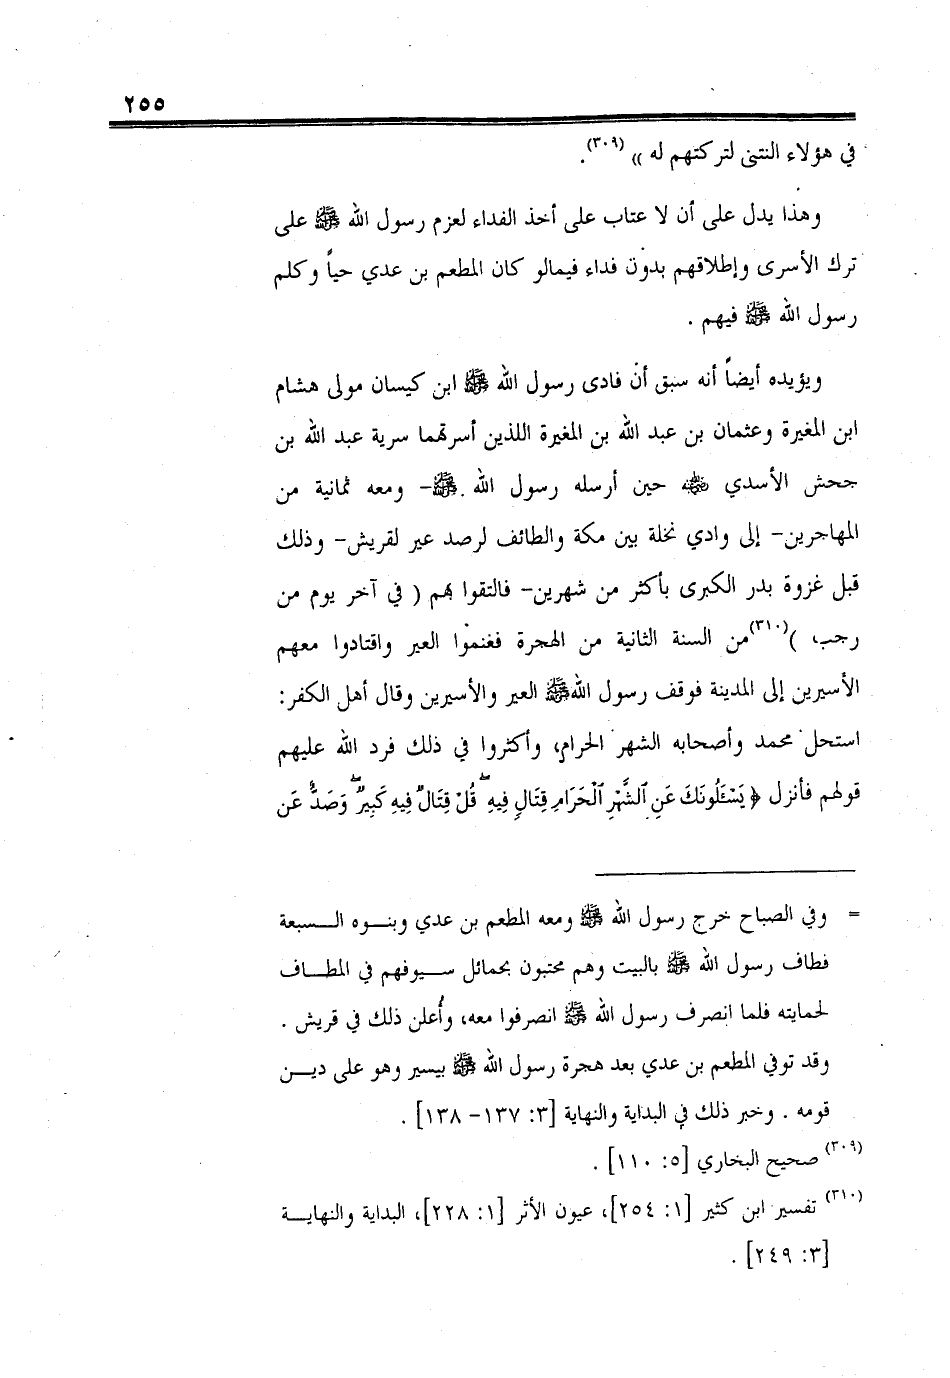 ٢٥٥
في هؤلاء النتنى لتركتهم له » (٣٠٩).
وهذا يدل على أن لا عتاب على أخذ الفداء لعزم رسول الله ﷺ على
ترك الأسرى وإطلاقهم بدون فداء فيمالو كان المطعم بن عدي حياً وكلم
رسول الله ﷺ فيهم .
ويؤيده أيضاً أنه سبق أن فادى رسول الله ﷺ ابن كيسان مولى هشام
ابن المغيرة وعثمان بن عبد الله بن المغيرة اللذين أسرتهما سرية عبد الله بن
جحش الأسدي رضي الله عنه حين أرسله رسول الله ﷺ- ومعه ثمانية من
المهاجرين- إلى وادي نخلة بين مكة والطائف لرصد عير لقريش- وذلك
قبل غزوة بدر الكبرى بأكثر من شهرين- فالتقوا بهم ( في آخر يوم من
رجب، )(٣١٠) من السنة الثانية من الهجرة فغنموا العير واقتادوا معهم
الأسيرين إلى المدينة فوقف رسول الله ﷺ العير والأسيرين وقال أهل الكفر:
استحل محمد وأصحابه الشهر الحرام، وأكثروا في ذلك فرد الله عليهم
قولهم فأنزل ﴿ يَسْـَٔلُونَكَ عَنِ ٱلشَّهْرِ ٱلْحَرَامِ قِتَالٍ فِيهِ ۖ قُلْ قِتَالٌ فِيهِ كَبِيرٌ ۖ وَصَدٌّ عَن
= وفي الصباح خرج رسول الله ﷺ ومعه المطعم بن عدي وبنوه السبعة
فطاف رسول الله ﷺ بالبيت وهم محتبون بحمائل سيوفهم في المطاف
لحمايته فلما انصرف رسول الله ﷺ انصرفوا معه، وأُعلن ذلك في قريش .
وقد توفي المطعم بن عدي بعد هجرة رسول الله ﷺ بيسير وهو على دين
قومه . وخبر ذلك في البداية والنهاية [٣: ١٣٧- ١٣٨] .
(٣٠٩) صحيح البخاري [٥: ١١٠] .
(٣١٠) تفسير ابن كثير [١: ٢٥٤]، عيون الأثر [١: ٢٢٨]، البداية والنهاية
[٣: ٢٤٩] .